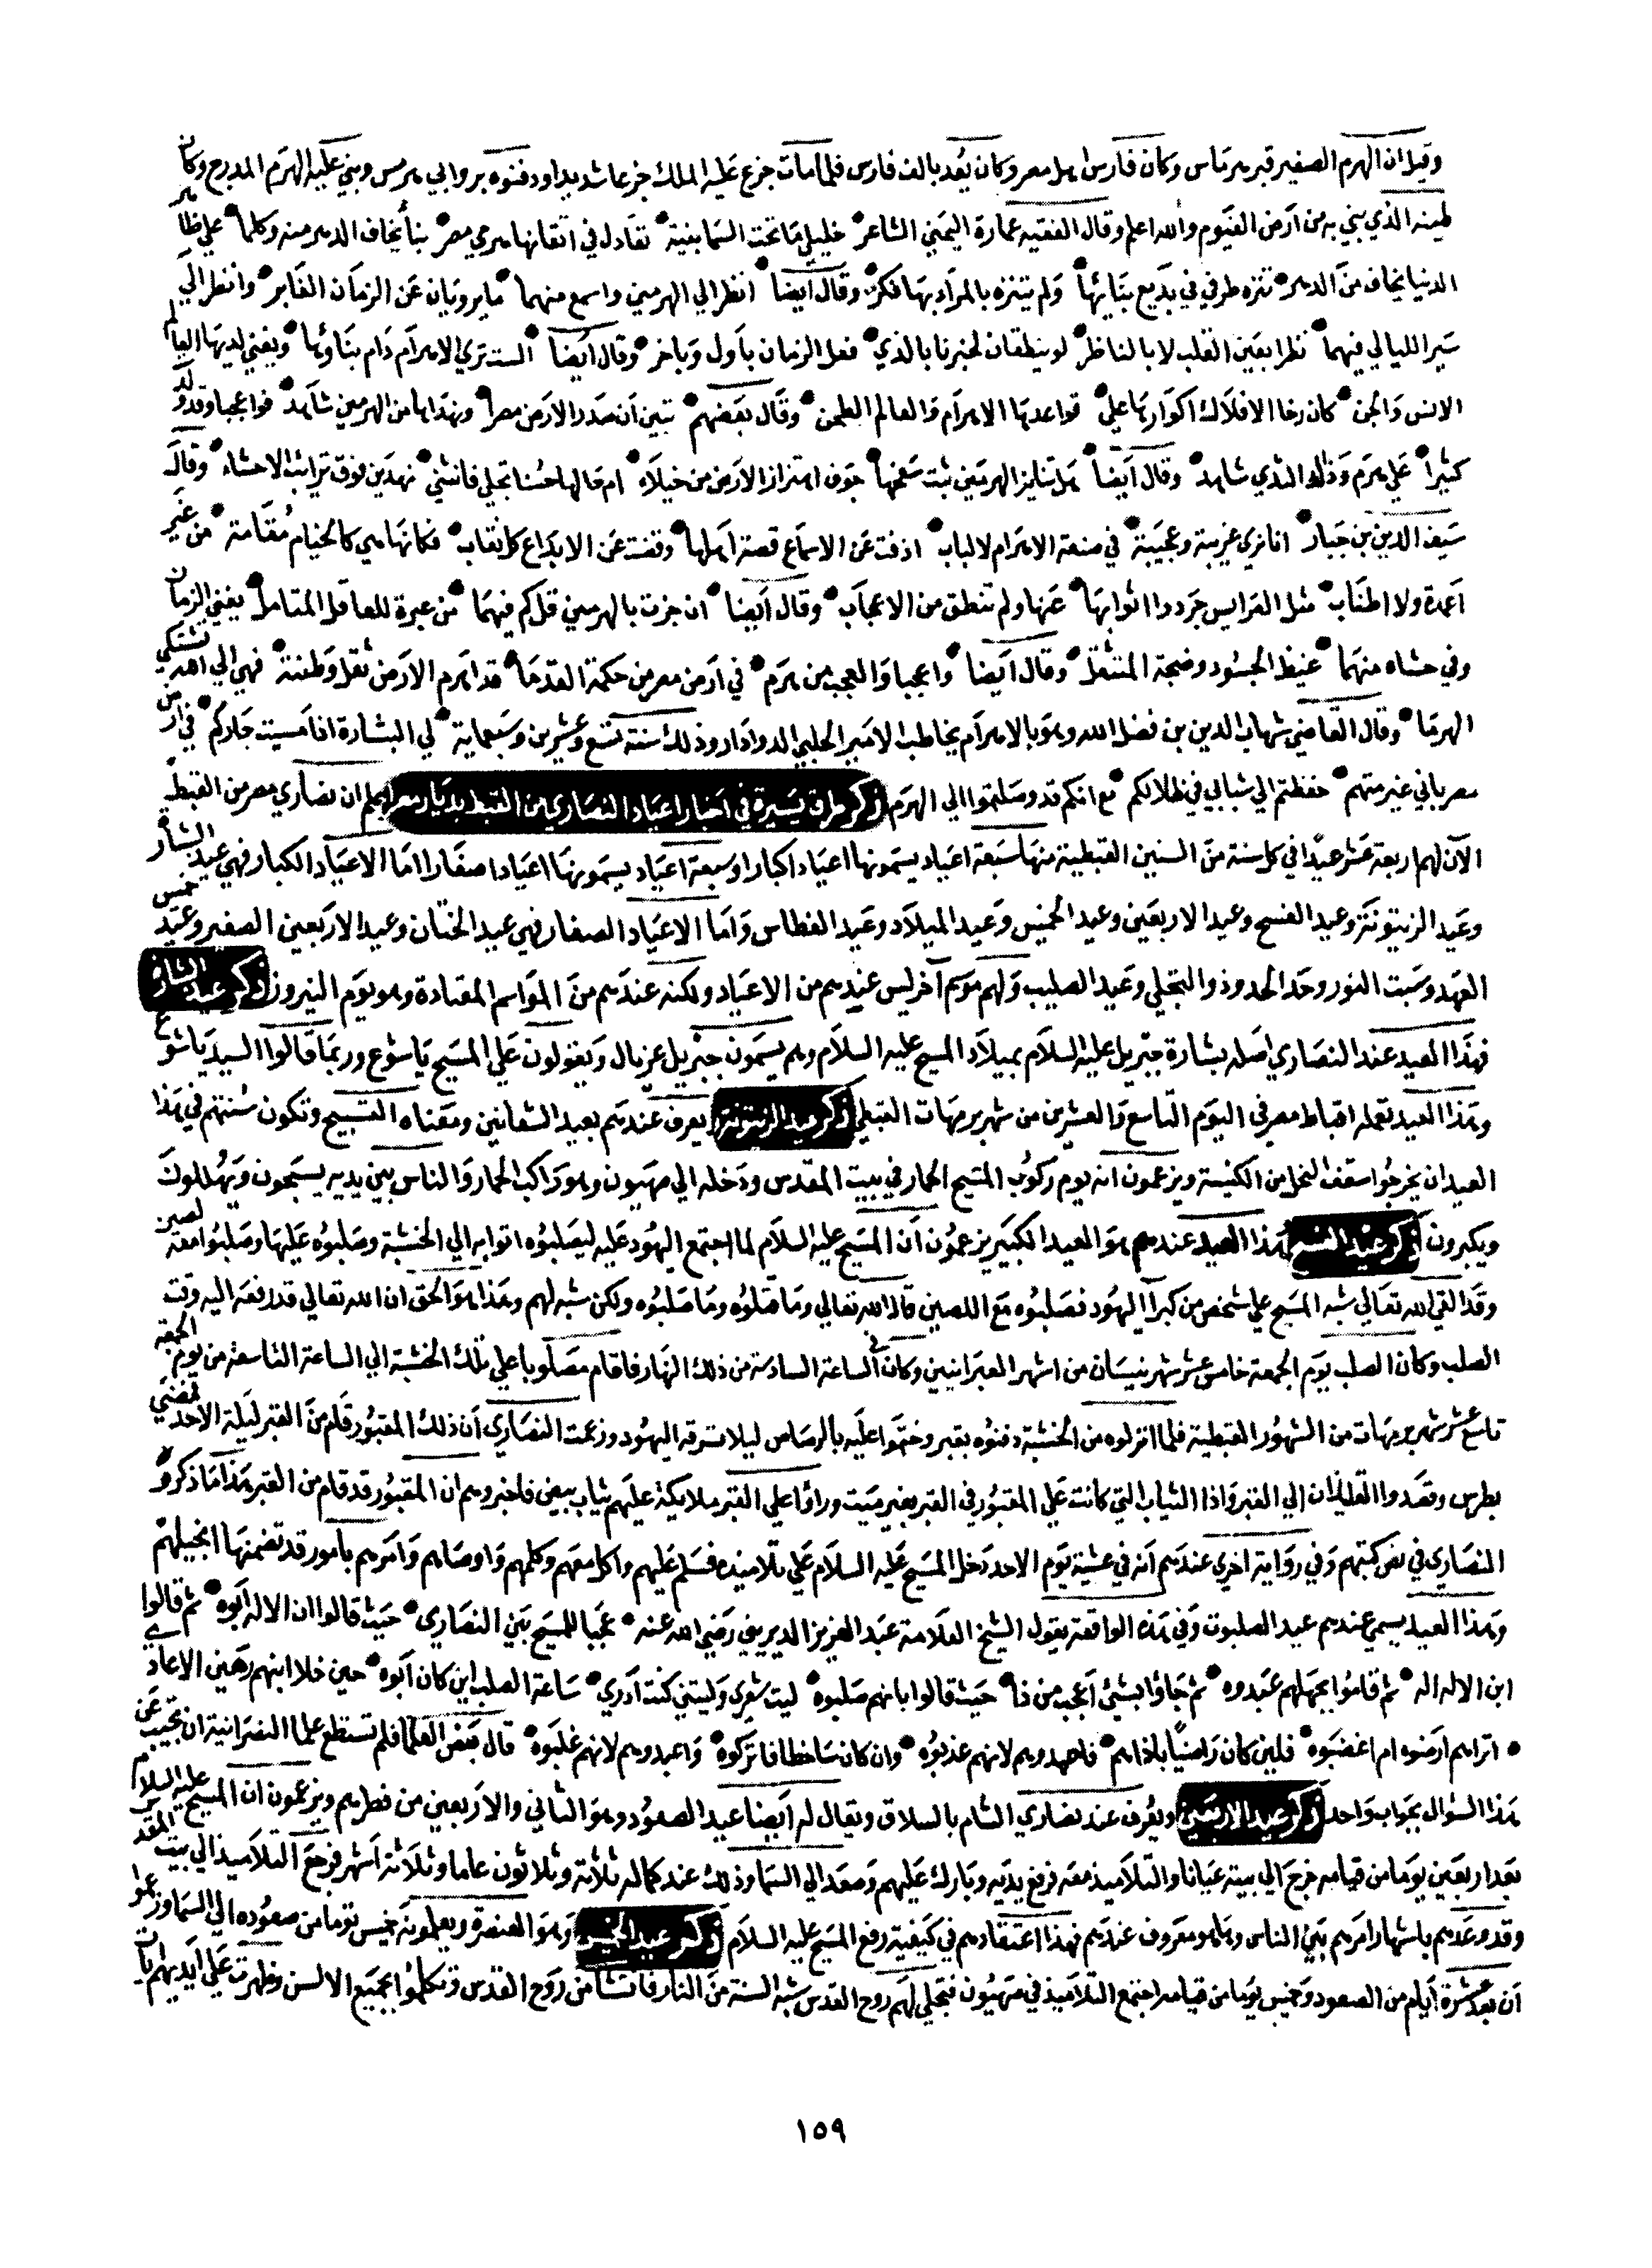 وقيل ان الهرم الصغير قبر هرماس وكان فارس اهل مصر وكان يُعد بالف فارس فلما مات جزع عليه الملك جزعا شديدا ودفنوه بروابي هرمس وبني عليه الهرم المدرج وكان
طينه الذي بني به من ارض الفيوم والله اعلم وقال الفقيه عمارة اليمني الشاعر خليلي ما تحت السما بنية تعادل في اتقانها هرمي مصر بنا يخاف الدهر منه وكلما علي ظاهر
الدنيا يخاف من الدهر تنزه طرفي في بديع بنائها ولم يتنزه بالمراد بها فكري وقال ايضا انظر الي الهرمين واسمع منهما ما يرويان عن الزمان الغابر وانظر الي
سير الليالي فيهما نظرا بعين القلب لا بالناظر لو ينطقان لخبرنا بالذي فعل الزمان باول وباخر وقال ايضا الست تري الاهرام دام بناؤها ويفني لديها العالم
الانس والجن كان رحا الافلاك اكوارها علي قواعدها الاهرام والعالم الطحن وقال بعضهم تبين ان صدر الارض مصر ونهداها من الهرمين شاهد فوا عجبا وقد ولدت
كثيرا علي هرم وذاك الذي شاهد وقال ايضا جوف اهتزاز الارض من خيلاه ام قالها حسنا تجلي فانثني نهدين فوق ترائب الاحشاء وقال
سيف الدين بن جبار انا نري غريبة وعجيبة في صنعة الاهرام لالباب اذفت عن الاسماع قصة اهلها وقضت عن الابداع كل نقاب فكانها هي كالخيام مقامة من غير
اعمدة ولا اطناب مثل العرايس جردوا اثوابها عنها ولم تنطق من الاعجاب وقال ايضا ان جزت بالهرمين قل كم فيهما من عبرة للعاقل المتامل يفني الزمان
وفي حشاه منهما غيظ الحسود وضجة المتثقل وقال ايضا واعجبا والعجب من هرم في ارض مصر من حكمة القدما قد اهرم الارض ثقل وطئته فهي الي الله تشتكي
الهرما وقال القاضي شهاب الدين بن فضل الله وهو بالاهرام يخاطب الامير الحلبي الدوادار وذلك سنة تسع وعشرين وسبعماية لي البشارة اذ امسيت جاركم في ارض
مصر باني غير متهم حفظتم الي شبابي في ظلالكم مع انكم قد وصلتموا الي الهرم ذكر طرف يسيرة في اخبار اعياد النصاري من القبط بديار مصر اعلم ان نصاري مصر من القبط
الآن لهم اربعة عشر عيدا في كل سنة من السنين القبطية منها سبعة اعياد يسمونها اعيادا كبارا وسبعة اعياد يسمونها اعيادا صغارا اما الاعياد الكبار فهي عيد البشارة
وعيد الزيتونة وعيد الفسح وعيد الاربعين وعيد الخميس وعيد الميلاد وعيد الغطاس واما الاعياد الصغار فهي عيد الختان وعيد الاربعين الصغير وعيد خميس
العهد وسبت النور وحد الحدود والتجلي وعيد الصليب ولهم موسم آخر ليس عندهم من الاعياد ولكنه عندهم من المواسم المعتادة وهو يوم النيروز ذكر عيد البشارة
فهذا العيد عند النصاري اصله بشارة جبريل عليه السلام بميلاد المسيح عليه السلام وهم يسمون جبريل غريال ويقولون علي المسيح ياشوع وربما قالوا السيد ياشوع
وهذا العيد تعمله اقباط مصر في اليوم التاسع والعشرين من شهر برمهات القبطي ذكر عيد الزيتونة يعرف عندهم بعيد الشعانين ومعناه التسبيح وتكون سنتهم في هذا
العيد ان يخرجوا سعف النخل من الكنيسة ويزعمون انه يوم ركوب المسيح الحمار في بيت المقدس ودخله الي صهيون وهو راكب الحمار والناس بين يديه يسبحون ويهللون
ويكبرون ذكر عيد الفسح هذا العيد عندهم هو العيد الكبير يزعمون ان المسيح عليه السلام لما اجتمع اليهود عليه ليصلبوه اتوا به الي الخشبة وصلبوه عليها وصلبوا معه لصين
وقد القي الله تعالي شبه المسيح علي شخص من كبراء اليهود فصلبوه مع اللصين قال الله تعالي وما قتلوه وما صلبوه ولكن شبه لهم وهذا هو الحق ان الله تعالي قد رفعه اليه وقت
الصلب وكان الصلب يوم الجمعة خامس عشر شهر نيسان من اشهر العبرانيين وكان في الساعة السادسة من ذلك النهار فاقام مصلوبا علي تلك الخشبة الي الساعة التاسعة من يوم الجمعة
تاسع عشر شهر برمهات من الشهور القبطية فلما انزلوه من الخشبة دفنوه بقبر وختموا عليه بالرصاص ليلا تسرقه اليهود وزعمت النصاري ان ذلك المقبور قام من القبر ليلة الاحد فمضي
بطرس وقصدوا الي القبر واذا الثياب التي كانت علي المقبور في القبر بغير ميت وراوا علي القبر ملايكة عليهم ثياب بيض فاخبروهم ان المقبور قد قام من القبر هذا ما ذكروه
النصاري في نص كتبهم وفي رواية اخري عندهم انه في عشية يوم الاحد دخل المسيح عليه السلام علي تلاميذه فسلم عليهم واكل معهم وكلمهم واوصاهم وامرهم بامور قد تضمنها انجيلهم
وهذا العيد يسمي عندهم عيد الصلبوت وفي هذه الواقعة يقول الشيخ العلامة عبد العزيز الديريني رضي الله عنه عجبا للمسيح بين النصاري حيث قالوا ان الاله ابوه ثم قالوا
ابن الاله اله ثم قاموا بجهلهم عبدوه ثم جاؤا بشئ اعجب من ذا حيث قالوا بانهم صلبوه ليت شعري وليتني كنت ادري ساعة الصلب اين كان ابوه حين خلا ابنهم رهين الاعادي
اتراهم ارضوه ام اغضبوه فلين كان راضيا باذاهم فاحمدوهم لانهم عذبوه وان كان ساخطا فاتركوه واعبدوهم لانهم غلبوه قال بعض العلما فلم تستطع علما النصرانية ان تجيب عن
هذا السؤال بجواب واحد ذكر عيد الاربعين ويعرف عند نصاري الشام بالسلاق ويقال له ايضا عيد الصعود وهو الثاني والاربعين من فطرهم ويزعمون ان المسيح عليه السلام
بعد اربعين يوما من قيامه خرج الي بيت عنيانا والتلاميذ معه فرفع يديه وبارك عليهم وصعد الي السما وذلك عند كماله ثلاثة وثلاثون عاما وثلاثة اشهر فرجع التلاميذ الي بيت المقدس
وقد وعدهم باشهار امرهم بين الناس وهو معروف عندهم فهذا اعتقادهم في كيفية رفع المسيح عليه السلام ذكر عيد الخميس وهو العنصرة ويعملونه خمسين يوما من صعوده الي السما وزعموا
ان بعد عشرة ايام من الصعود وخمسين يوما من قيامه اجتمع التلاميذ في صهيون فتجلي لهم روح القدس شبه السنة من النار فامتلئا من روح القدس وتكلموا بجميع الالسن وظهرت علي ايديهم ايات
١٥٩